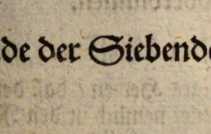 de der Siebende